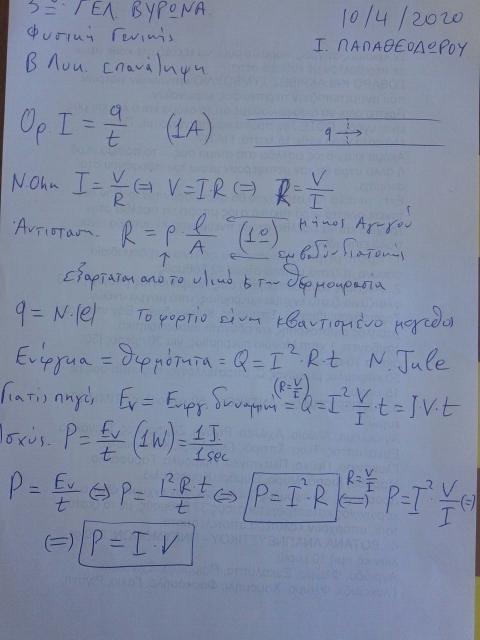 3ο ΓΕΛ. ΒΥΡΩΝΑ 10/4/2020
Φυσική Γενικής Ι. ΠΑΠΑΘΕΟΔΩΡΟΥ
Β Λυκ. επανάληψη
Ορ. I = q/t (1A) q →
Ν.Ohm I = V/R ⇔ V = I·R ⇔ R = V/I
Αντίσταση. R = ρ · l/A (1Ω) ← μήκος Αγωγού
← εμβαδόν διατομής
εξαρτάται από το υλικό & την θερμοκρασία
q = N·|e| Το φορτίο είναι κβαντισμένο μέγεθος
Ενέργεια = Θερμότητα = Q = I²·R·t N. Jule
Για τις πηγές Eν = Ενεργ. δυναμική = Q = I²·V/I·t = IV·t
(R=V/I)
Ισχύς. P = Eν/t (1W) = 1J/1sec
P = Eν/t ⇔ P = I²·R·t/t ⇔ P = I²·R ⇔ (R=V/I) P = I²·V/I ⇔
⇔ P = I·V